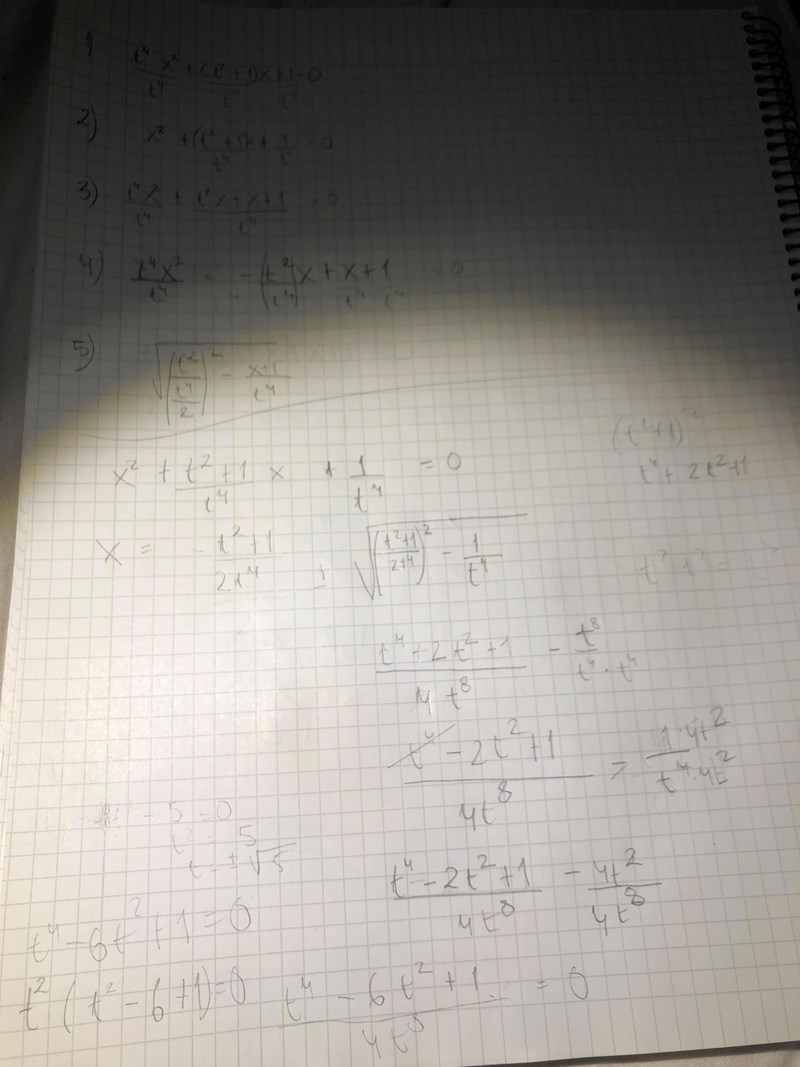 1) t⁴x²/t⁴ + (t²+1)x+1/t⁴ = 0
2) x² + (t²+1)x/t⁴ + 1/t⁴ = 0
3) t⁴x²/t⁴ + t²x+x+1/t⁴ = 0
4) t⁴x²/t⁴ = -(t²/t⁴)x + x+1/t⁴ = 0
5) √((t²/t⁴/2)² - x+1/t⁴)
(t²+1)²
x² + t²+1/t⁴ x + 1/t⁴ = 0
t⁴ + 2t²+1
x = - t²+1/2t⁴ ± √((t²+1/2t⁴)² - 1/t⁴)
t⁴+2t²+1/4t⁸ - t⁸/t⁴·t⁴
t⁴-2t²+1/4t⁸ > 1·4t²/t⁴·4t²
- 5 = 0
5
t = ±√5
t⁴-2t²+1/4t⁸ - 4t²/4t⁸
t⁴-6t²+1=0
t²(t²-6+1)=0
t⁴-6t²+1/4t⁸ = 0